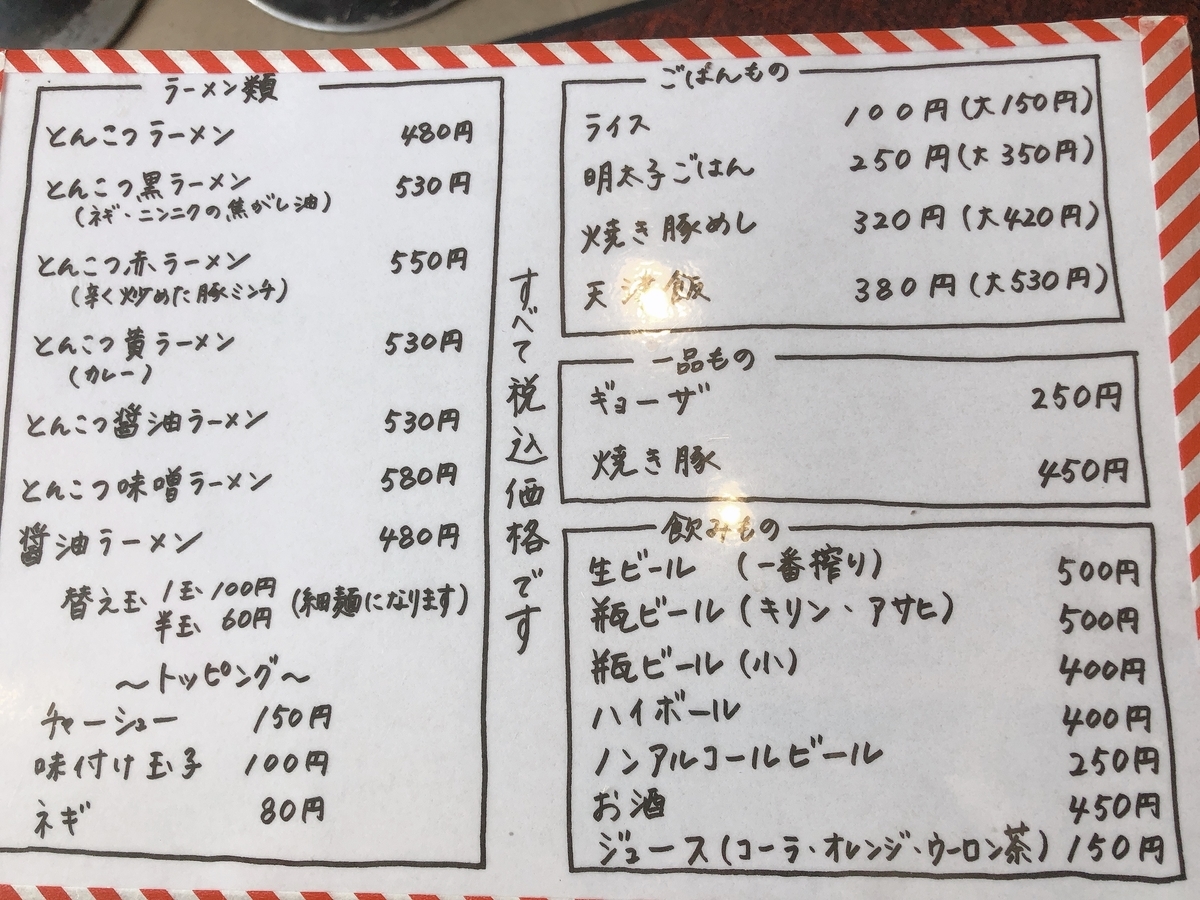 ラーメン類
とんこつラーメン 480円
とんこつ黒ラーメン 530円
(ネギ・ニンニクの焦がし油)
とんこつ赤ラーメン 550円
(辛く炒めた豚ミンチ)
とんこつ黄ラーメン 530円
(カレー)
とんこつ醤油ラーメン 530円
とんこつ味噌ラーメン 580円
醤油ラーメン 480円
替え玉 1玉 100円 (細麺になります)
半玉 60円
～トッピング～
チャーシュー 150円
味付け玉子 100円
ネギ 80円
すべて税込価格です
ごはんもの
ライス 100円(大150円)
明太子ごはん 250円(大350円)
焼き豚めし 320円(大420円)
天津飯 380円(大530円)
一品もの
ギョーザ 250円
焼き豚 450円
飲みもの
生ビール (一番搾り) 500円
瓶ビール(キリン・アサヒ) 500円
瓶ビール(小) 400円
ハイボール 400円
ノンアルコールビール 250円
お酒 450円
ジュース(コーラ・オレンジ・ウーロン茶) 150円